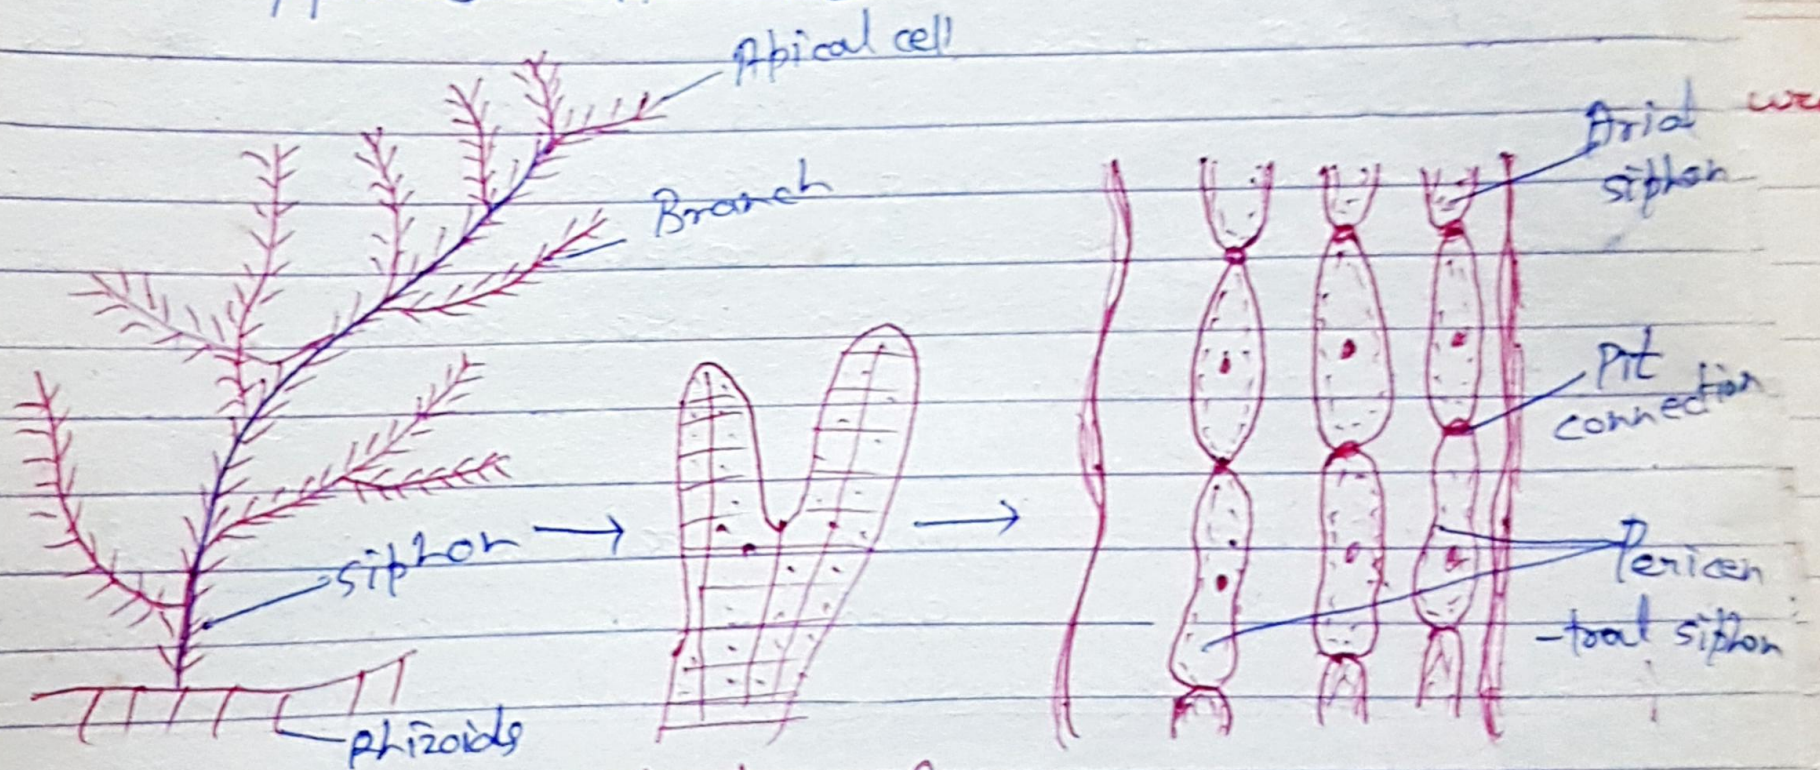 Apical cell
Branch
siphon
Rhizoids
Arial
siphon
Pit
connection
Pericen
-tral siphon